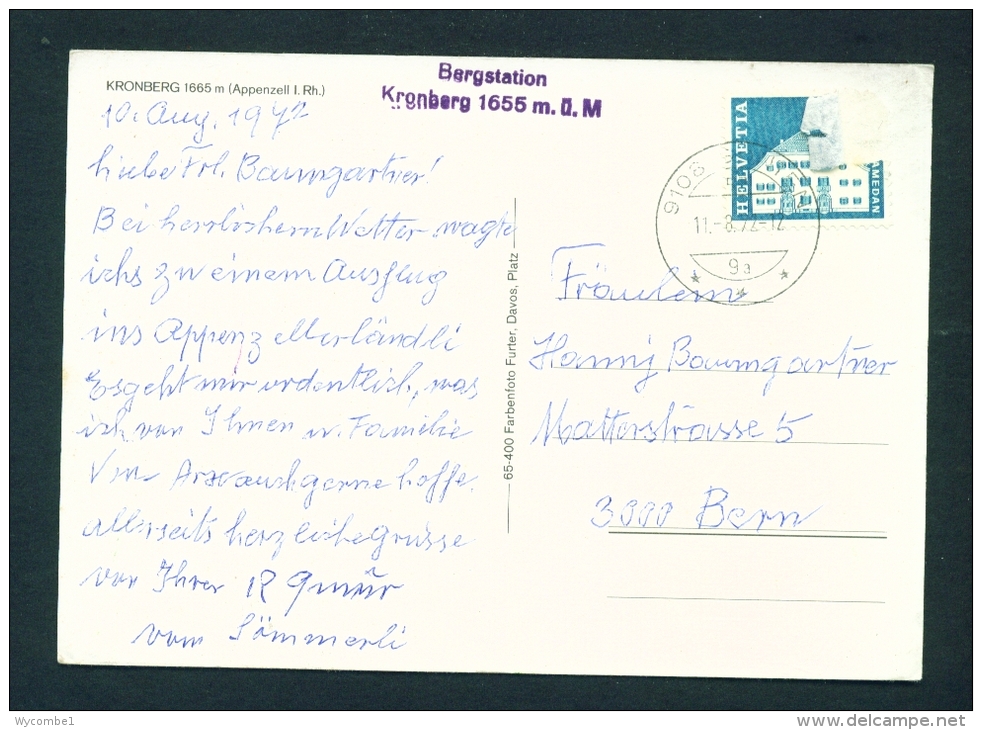 KRONBERG 1665 m (Appenzell I. Rh.)
Bergstation
Kronberg 1655 m. ü. M
10. Aug. 1972
Liebe Frl. Baumgartner!
Bei herrlichem Wetter wagte
ichs zu einem Ausflug
ins Appenzellerländli
Es geht mir ordentlich, was
ich von Ihnen u. Familie
Von Arx auch gerne hoffe.
Allerseits herzliche Grüsse
von Ihrer R Gmür
vom Sömmerli
65-400 Farbenfoto Furter, Davos, Platz
HELVETIA
AMEDAN
9108
11.-8.72-12
9a
Fräulein
Hanny Baumgartner
Matterstrasse 5
3000 Bern
Wycombe1
www.delcampe.net